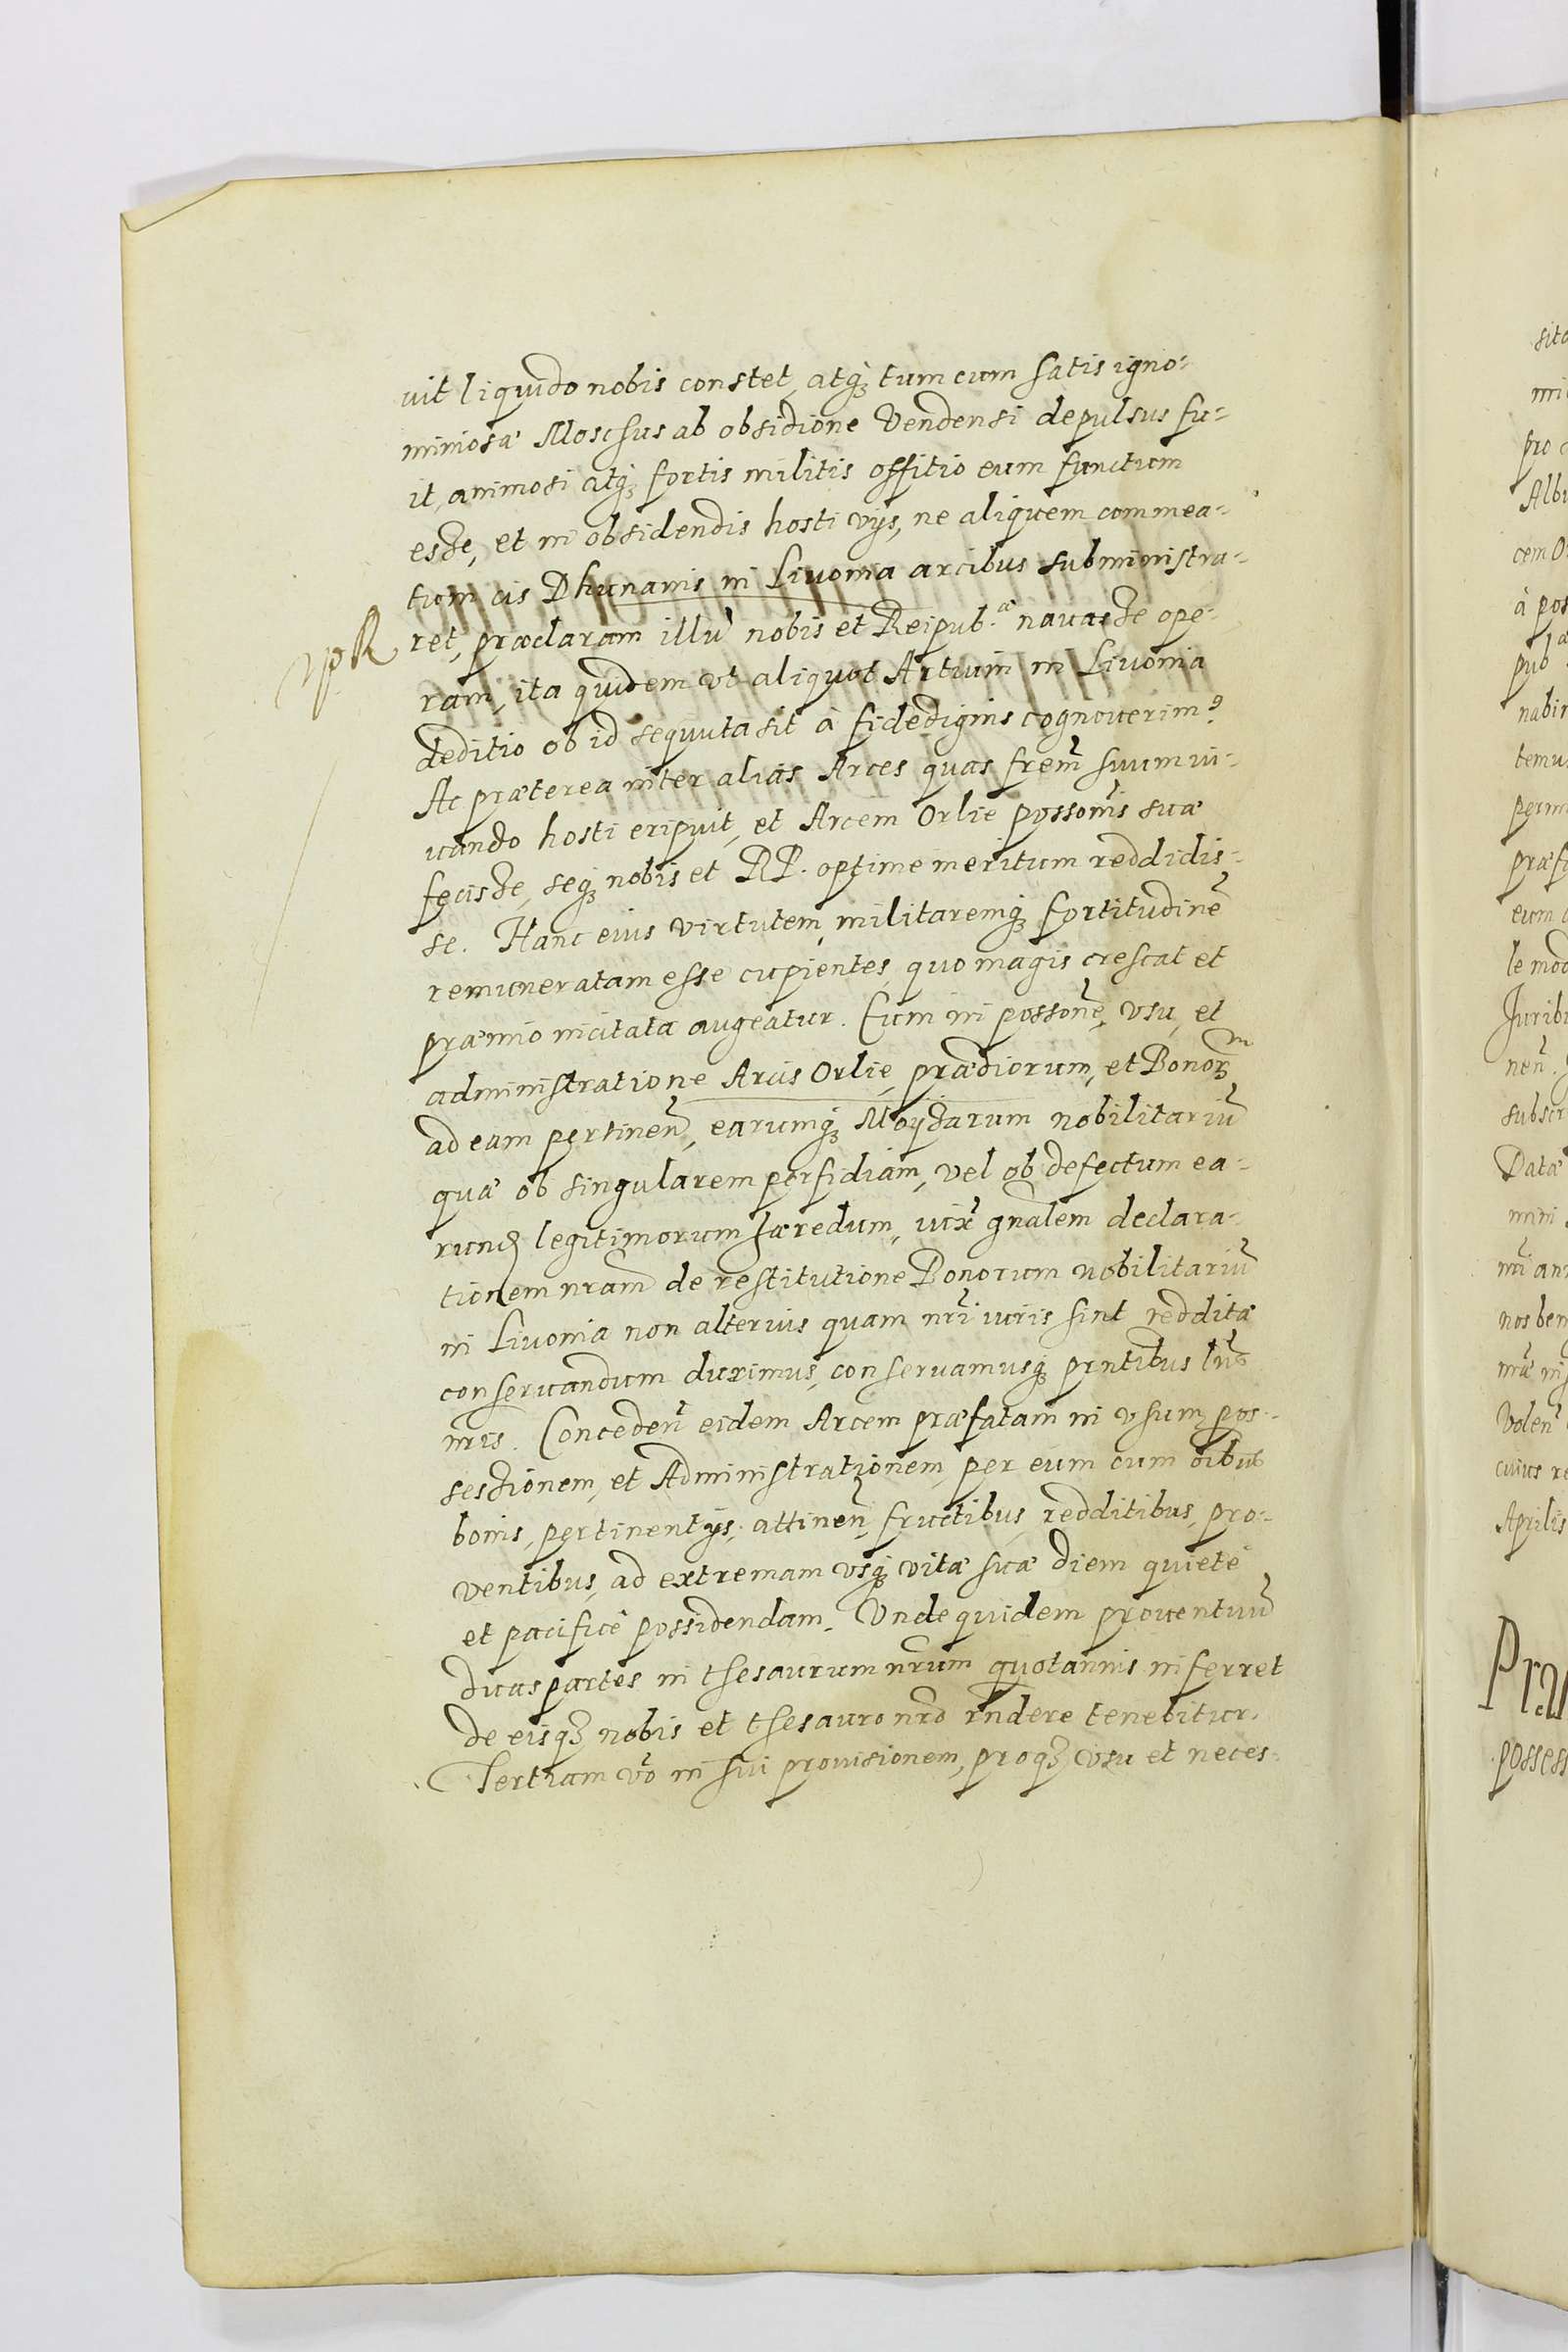 vit liquido nobis constet, atq3 tum cum satis igno-
miniosæ Moschus ab obsidione Vendensi depulsus fu-
it, animosi atq3 fortis militis offitio eum functum
esse, et in obsidendis hosti vijs, ne aliquem commea-
tum cis Dhunanis in Livonia arcibus subministra-
ret, præclaram illũ nobis et Reipub.æ navasse ope-
ram, ita quidem vt aliquot Artium in Livonia
deditio ob id sequuta sit à fidedignis cognouerim9
Ac præterea inter alias Arces quas frem̃ suum iu-
uando hosti eripuit, et Arcem Orlie possonis̃ suæ
fecisse, seq3 nobis et RP. optime meritum reddidis-
se. Hanc eius virtutem, militaremq3 fortitudinẽ
remuneratam esse cupientes, quo magis crescat et
præmio incitata augeatur. Eum in possonẽ, vsu, et
administratione Arcis Orlie, prædiorum, et Bonorm
ad eam pertineñ, earumq3 Moyzarum nobilitariũ
quæ ob singularem perfidiam, vel ob defectum ea-
rund legitimorum hæredum, iux̃ gnalem declara-
tionem nram̃ de restitutione Bonorum nobilitariũ
in Livonia non alterius quam nrĩ iuris sint redditæ
conseruandum duximus, conservamusq3 pntibus lrĩs
nrĩs. Concedeñ eidem Arcem præfatam in vsum, pos-
sessionem, et Administrationem, per eum cum oĩbus
bonis, pertinentijs, attineñ, fructibus, redditibus, pro-
ventibus, ad extremam vsq3 vitæ suæ diem quietè
et pacificè possidendam. Vnde quidem prouentuũ
duas partes in thesaurum nrũm quotannis inferret
de eisq3 nobis et thesauro nrõ rñdere tenebitur.
Tertiam võ in sui provisionem, proq3 vsu et neces-